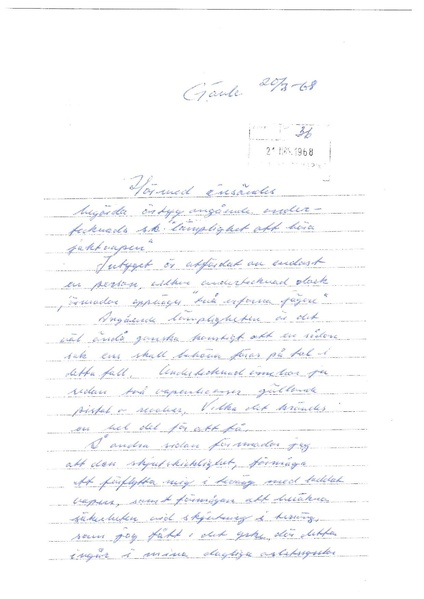 Gävle 20/3-68
21 1968
Härmed översändes
begärda intyg angående under-
tecknads sk "lämplighet att bära
jaktvapen"
Intyget är utfärdat av endast
en person, vilken undertecknad dock
två erfarna jägare"
Angående lämpligheten är det
väl ändå ganska konstigt att en sådan
sak ens skall behöva föras på tal i
detta fall. Undertecknad innehar ju
redan två vapenlicenser gällande
pistol o revolver, Vilka det krävdes
en hel del för att få.
Å andra sidan förmodar jag
att den skjutskicklighet, förmåga
att förflytta mig i terräng med laddat
vapen, samt förmågan att bedöma
säkerheten vid skjutning i terräng,
som jag fått i det yrke, där detta
ingår i mina dagliga arbetsuppgifter